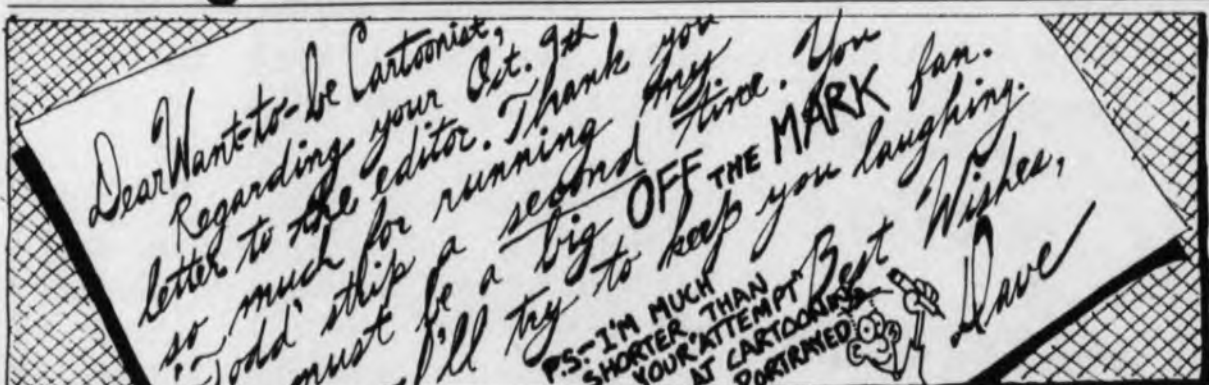 Dear Want-to-be Cartoonist,
Regarding your Oct. 9th
letter to the editor. Thank you
so much for running my
'Todd' strip a second time. You
must be a big OFF THE MARK fan.
I'll try to keep you laughing.
Best Wishes,
Dave
P.S.- I'M MUCH
SHORTER THAN
YOUR 'ATTEMPT'
AT CARTOONING
PORTRAYED